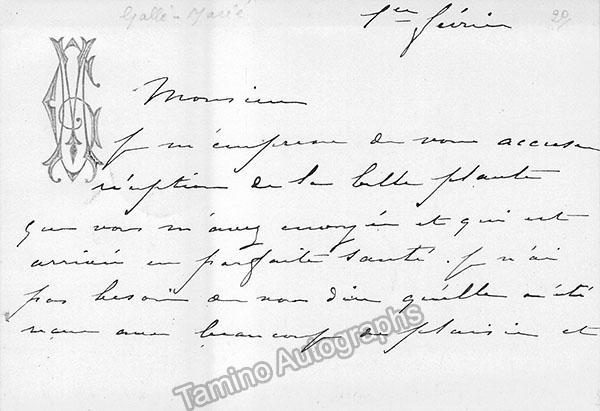 Gallé-Marié
1er février
20
Monsieur
Je m'empresse de vous accuser
réception de la belle plante
que vous m'avez envoyée et qui est
arrivée en parfaite santé. Je n'ai
pas besoin de vous dire qu'elle a été
reçue avec beaucoup de plaisir et
Tamino Autographs